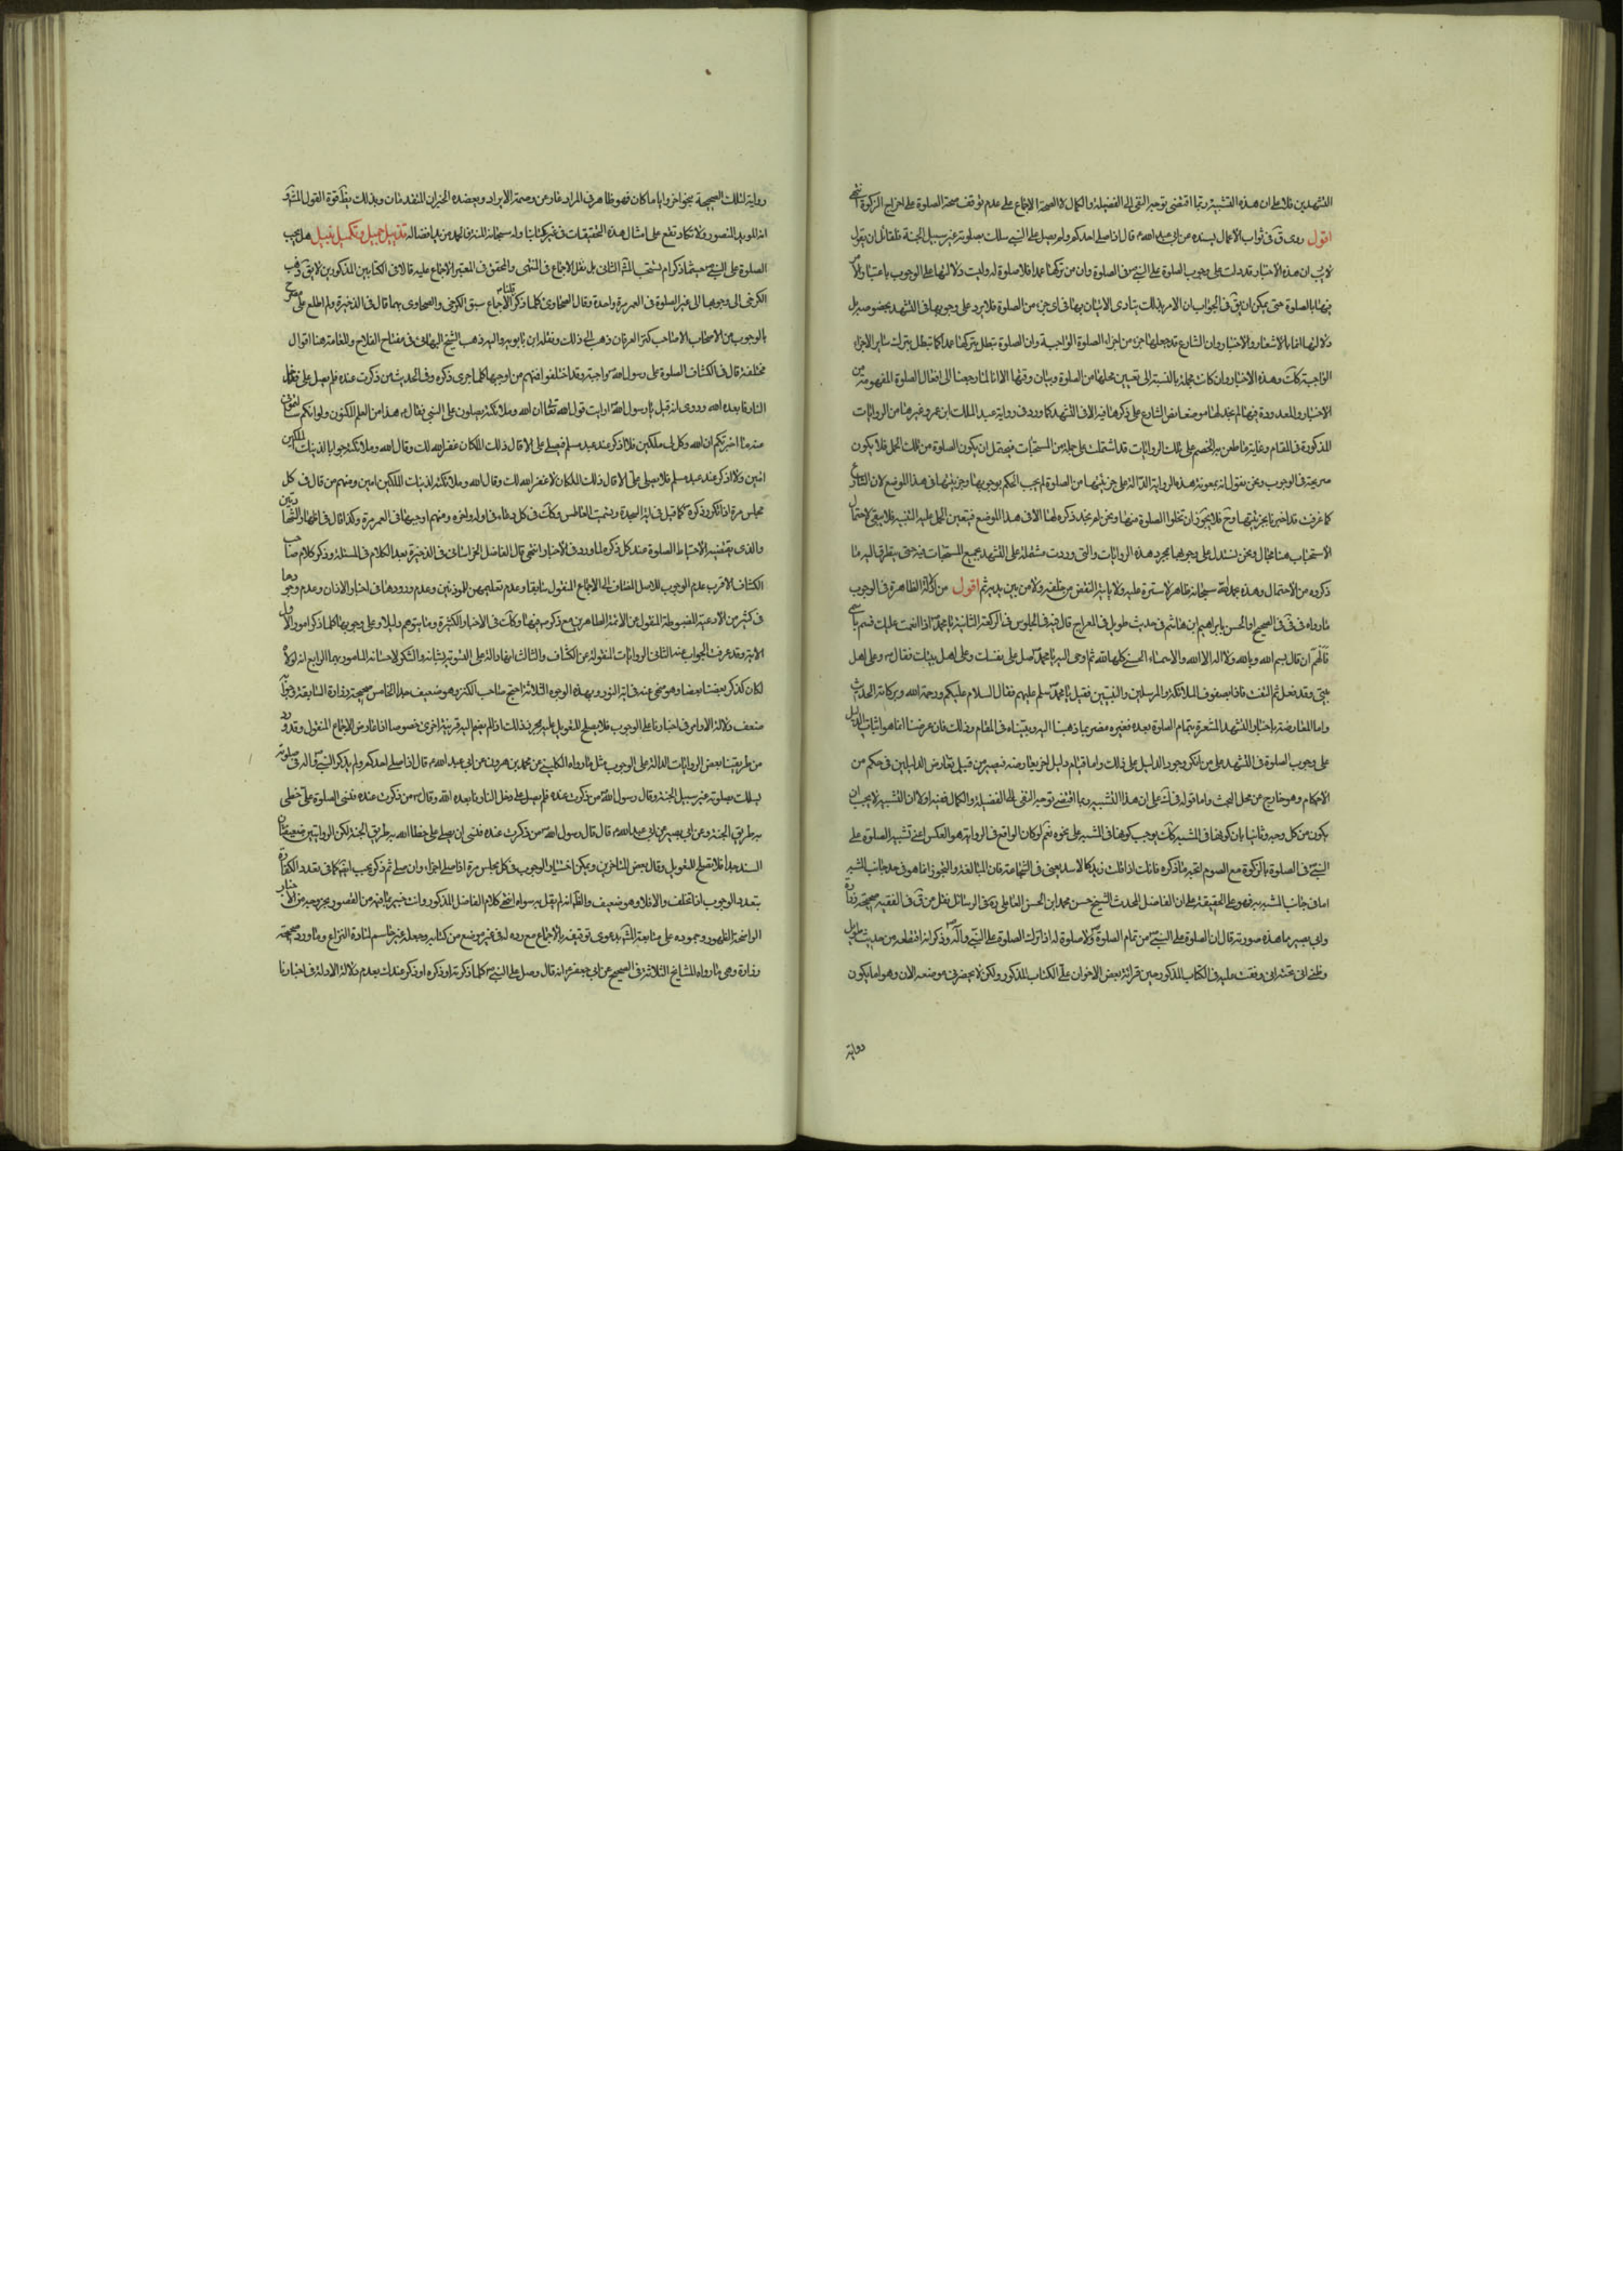 التشهدين فلا على ان هذه التشبيه ربما اقتضى توجه النفى الى الفضيلة والكمال لا الصحة الاجماع على عدم توقف صحة الصلوة على اخراج الزكوة انتهى
اقول روى ق فى ثواب الاعمال بسنده عن ابى عبد الله قال اذا صلى احدكم ولم يصل على النبى سلك بصلوته غير سبيل الجنة فلقائل ان يقول
لا يب ان هذه الاخبار قد دلت على وجوب الصلوة على النبى ص فى الصلوة وان من تركها عمدا فلا صلوة له وليت دلالتها على الوجوب باعتبار
فيها بالصلوة حتى يمكن ان يق فى الجواب ان الامر بذلك يتادى الاتيان بها فى اى جزء من الصلوة فلا يرد على وجوبها فى التشهد بخصوصه بل
دلالتها انما بالاشعار والاخبار وان الشارع قد جعلها جزء من اجزاء الصلوة الواجبة وان الصلوة تبطل بتركها عمدا كما تبطل بترك ساير الاجزاء
الواجبة كك وهذه الاخبار وان كانت مجملة بالنسبة الى تعيين محلها من الصلوة وبيان وقتها الا انا لما رجعنا الى افعال الصلوة المفهومة من
الاخبار والمعدودة فيها لم نجد لها موضعا نص الشارع على ذكرها فيه الا فى التشهد كما ورد فى رواية عبد الملك ابن عمرو وغيرها من الروايات
المذكورة فى المقام وغاية ما طعن به الخصم على تلك الروايات قد اشتملت على جملة من المستحبات فيحتمل ان يكون الصلوة من تلك الجمل فلا يكون
صريحة فى الوجوب ونحن نقول انه بمعونة هذه الرواية الدالة على جزئيتها من الصلوة لم يجب الحكم بوجوبها وجزئيتها فى هذا الموضع لان الشارع
كما عرفت قد اخبرنا بجزئيتها وح فلا يجوز ان تخلوا الصلوة منها ونحن لم نجد ذكره لها الا فى هذا الموضع فيتعين الحمل عليه البتة فلا يبقى لاحتمال
الاستحباب هنا مجال ونحن نستدل على وجوبها بمجرد هذه الروايات والتى وردت مشتملة على التشهد بجميع المستحبات فيه حتى يتطرق اليه ما
ذكروه من الاحتمال وهذه بحمد الله سبحانه ظاهر لا سترة عليه ولا ياتيه النقض من خلفه ولا من بين يديه ثم اقول من الادلة الظاهرة فى الوجوب
ما رواه فى الصحيح ابراهيم ابن هاشم فى حديث طويل فى المعراج قال فيه فى الجلوس فى الركعة الثانية يا محمد اذا انعمت عليك فسم باسمى
فالهم ان قال بسم الله وبالله ولا اله الا الله والاسماء الحسنى كلها لله ثم اوحى اليه يا محمد صل على نفسك وعلى اهل بيتك فقال ص وعلى اهل
بيتى وقد فعل ثم التفت فاذا بصفوف الملائكة والمرسلين والنبيين فقيل يا محمد سلم عليهم فقال السلام عليكم ورحمة الله وبركاته الحديث
واما المعارضة باخبار التشهد المشعرة بتمام الصلوة بعده فغيره مضر بما ذهبنا اليه وبيناه فى المقام وذلك فان غرضنا انما هو اثبات الدليل
على وجوب الصلوة فى التشهد على من انكر وجود الدليل على ذلك واما قيام دليل اخر يعارضه فيصير من قبيل تعارض الدليلين فى حكم من
الاحكام وهو خارج عن محل البحث واما قوله ان هذا التشبيه ربما اقتضى توجه النفى الى الفضيلة والكمال ففيه اولا ان التشبيه لا يجب ان
يكون من كل وجه وثانيا بان كونها فى المشبه كك يوجب كونها فى المشبه على نحوه نعم لو كان الواقع فى الرواية هو العكس اعنى تشبيه الصلوة على
النبى ص فى الصلوة بالزكوة مع الصوم اتجه ما ذكره فانك اذا قلت زيد كالاسد يعنى فى الشجاعة فان المبالغة والتجوز انما هو فى حد جانب المشبه
اما فى جانب المشبه به فهو على الحقيقة على ان الفاضل المحدث الشيخ حسن محمد ابن الحسن العاملى فى الوسائل نقل عن ق فى الفقيه صحيحة
وابى بصير ما هذه صورته قال ان الصلوة على النبى ص من تمام الصلوة ولا صلوة له اذا ترك الصلوة على النبى واله وذكر انه اقتطعه من حديث طويل
وظنى انى عثرت وقفت عليه فى الكتاب المذكور حين قرائة بعض الاخوان على الكتاب المذكور ولكن لا يحضرنى موضعه الان وهو اما يكون
رواية
رواية لتلك الصحيحة بنحو اخر واياما كان فهو ظاهر فى المراد عار عن وصمة الايراد ويعضده الخبران المتقدمان وبذلك يظهر قوة القول المشهور
انه المؤيد المنصور ولا تكاد تقع على امثال هذه التحقيقات فى غير كتابنا وله سبحانه المنة فالحمد من يد افضاله تذييل جميل وتكميل نبيل هل يجب
الصلوة على النبى ص حيثما ذكر ام يستحب المش الثانى بل نقل الاجماع فى المنتهى والمحقق فى المعتبر الاجماع عليه قالا فى الكتابين المذكورين لا يق ذهب
الكرخى الى وجوبها الى غير الصلوة فى العمر مرة واحدة وقال الطحاوى كلما ذكر قلنا الاجماع سبق الكرخى والطحاوى بهما قال فى الذخيرة ولم اطلع على مصرح
بالوجوب من الاصحاب الا صاحب كنز العرفان ذهب الى ذلك ونقله ابن بابويه واليه ذهب الشيخ البهائى فى مفتاح الفلاح وللعامة هنا اقوال
مختلفة قال فى الكشاف الصلوة على رسول الله ص واجبة وقد اختلفوا فمنهم من اوجبها كلما جرى ذكره وفى الحديث من ذكرت عنده فلم يصل على فدخل
النار فابعده الله وروى انه قيل يا رسول الله ارايت قول الله تعالى ان الله وملائكته يصلون على النبى فقال هذا من العلم المكنون ولولا انكم سالتمونى
عنه ما اخبرتكم ان الله وكل بى ملكين فلا اذكر عند عبد مسلم فيصلى على الا قال ذلك الملكان غفر الله لك وقال الله وملائكته جوابا لذينك الملكين
امين ولا اذكر عند عبد مسلم فلا يصلى على الا قال ذلك الملكان لا غفر الله لك وقال الله وملائكته لذينك الملكين امين ومنهم من قال فى كل
مجلس مرة اذا تكرر ذكره كما قيل فى اية السجدة وتشميت العاطس وكك فى كل دعاء فى اوله واخره ومنهم اوجبها فى العمر مرة وكذا قال فى اظهار الشهادتين
والذى يقتضيه الاحتياط الصلوة عند كل ذكر لما ورد فى الاخبار انتهى قال الفاضل الخراسانى فى الذخيرة بعد الكلام فى المسئلة وذكر كلام صاحب
الكشاف الاقرب عدم الوجوب للاصل المضاف الى الاجماع المنقول سابقا وعدم تعليمهن للمؤذنين وعدم ورودها فى اخبار الاذان وعدم وجودها
فى كثير من الادعية المضبوطة المنقولة عن الائمة الطاهرين مع ذكره فيها وكك فى الاخبار الكثيرة وما يتوهم دليلا على وجوبها كلما ذكر امور الاول
الاية وقد عرفت الجواب عنه الثانى الروايات المنقولة عن الكشاف والثالث
لكان كذكر بعضنا بعضا وهو منهى عنه فى اية النور وبهذه الوجوه الثلاثة احتج صاحب الكنز وهو ضعيف جدا الخامس صحيحة زرارة السابقة
ضعف دلالة الاوامر فى اخبارنا على الوجوب فلا يصلح للتعويل عليه بمجرد ذلك اذا لم ينضم اليه قرينة اخرى خصوصا اذا عارض الاجماع المنقول وقد ورد
من طريقنا بعض الروايات الدالة على الوجوب مثل ما رواه الكلينى عن محمد بن هرون عن ابى عبد الله قال اذا صلى احدكم ولم يذكر النبى واله فى صلوته
يسلك بصلوته غير سبيل الجنة وقال رسول الله ص من ذكرت عنده فلم يصل على دخل النار فابعده الله وقال ص من ذكرت عنده فنسى الصلوة على خطى
به طريق الجنة وعن ابى بصير عن ابى عبد الله قال قال رسول الله ص من ذكرت عنده فنسى ان يصلى على خطا الله به طريق الجنة لكن الروايتين ضعيفتان
السند جدا فلا تصلح للتعويل وقال بعض المتاخرين ويمكن اختيار الوجوب فى كل مجلس مرة اذا صلى اخراء وان صلى ثم ذكر يجب ايضا كما فى تعدد الكفارة
بتعدد الموجب اذا تخلف والا فلا وهو ضعيف والظ انه لم يقل به سواه انتهى كلام الفاضل المذكور وانت خبير بما فيه من القصور بخروجه عن الاخبار
الواضحة الظهور وجموده على متابعة المشهور بدعوى توقيفه بالاجماع مع رده له فى غير موضع من كتابه وجعله غير حاسم لمادة النزاع وما ورد صحيحة
زرارة وهى ما رواه المشايخ الثلاثة فى الصحيح عن ابى جعفر انه قال وصل على النبى ص كلما ذكرته او ذكره او ذكر عندك بعدم دلالة الاوامر فى اخبارنا